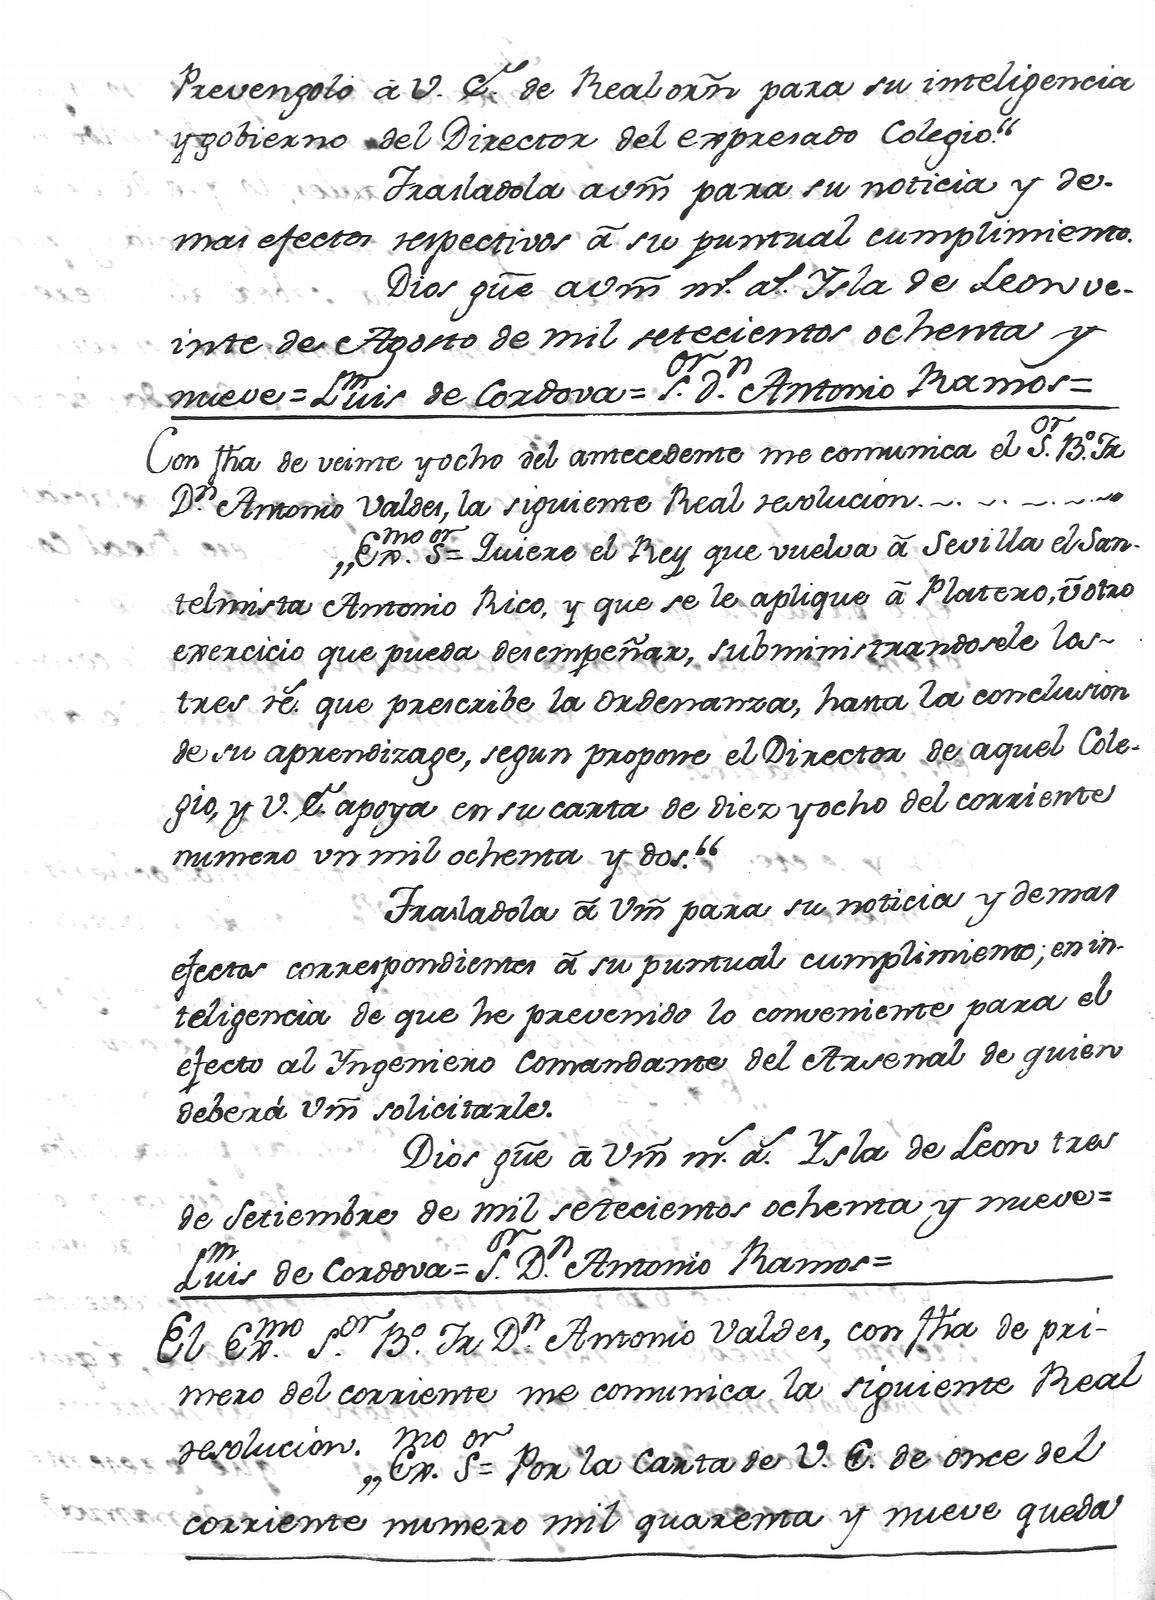 Prevengolo à V. E. de Real orñ para su inteligencia
y gobierno del Director del expresado Colegio."
Trasladola avm̃ para su noticia y de-
mas efectos respectivos ã su puntual cumplimiento.
Dios gũe avm̃ m.s a.s Ysla de Leon ve-
inte de Agosto de mil setecientos ochenta y
nueve= Luis m de Cordova= S.or D.n Antonio Ramos=
Con fħa de veinte y ocho del antecedente me comunica el S.or B.o Fr
D.n Antonio Valdes, la siguiente Real resolucion. ~ . ~ . ~ . ~
„Ex.mo S.or= Quiere el Rey que vuelva ã Sevilla el San-
telmista Antonio Rico, y que se le aplique ã Platero, ũ otro
exercicio que pueda desempeñar, subministrandosele los~
tres r.s que prescribe la Ordenanza, hasta la conclusion
de su aprendizage, segun propone el Director de aquel Cole-
gio, y V. E. apoya en su carta de diez y ocho del corriente
numero vn mil ochenta y dos."
Trasladola ã Vm̃ para su noticia y demas
efectos correspondientes ã su puntual cumplimiento; en in-
teligencia de que he prevenido lo conveniente para el
efecto al Yngeniero Comandante del Arsenal de quien
deberá Vm̃ solicitarle.
Dios gũe à Vm̃ m.s a.s Ysla de Leon tres
de Setiembre de mil setecientos ochenta y nueve=
Luis m de Cordova= S.or D.n Antonio Ramos=
El Ex.mo S.or B.o Fr D.n Antonio Valdes, con fħa de pri-
mero del corriente me comunica la siguiente Real
resolucion. „Ex.mo S.or= Por la Carta de V. E. de once del
corriente numero mil quarenta y nueve queda